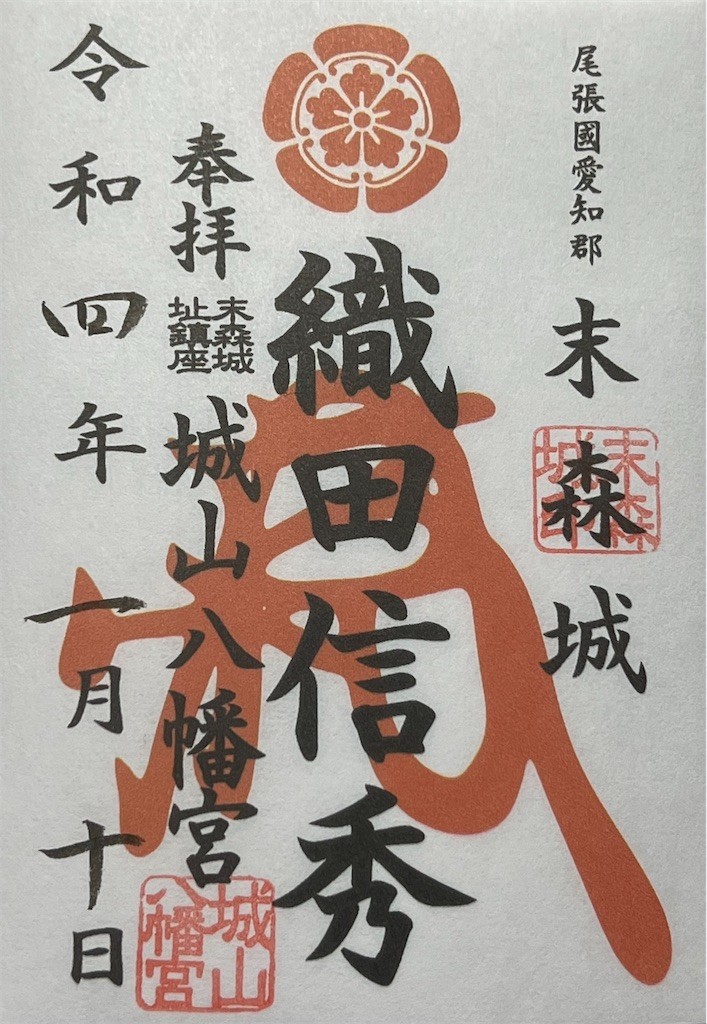 尾張國愛知郡
末森城
末森城印
織田信秀
奉拝
末森城
址鎮座
城山八幡宮
城山
八幡宮
令和四年一月十日